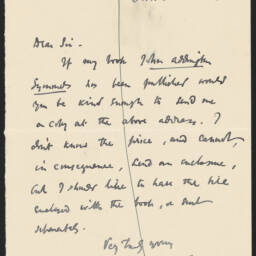 Dear Sir.
If my book John Addington
Symonds has been published would
you be kind enough to send me
a copy at the above address. I
don't know the price, and cannot,
in consequence, send an enclosure,
but I should like to have the bill
enclosed with the book, or sent
separately.
Very truly yours